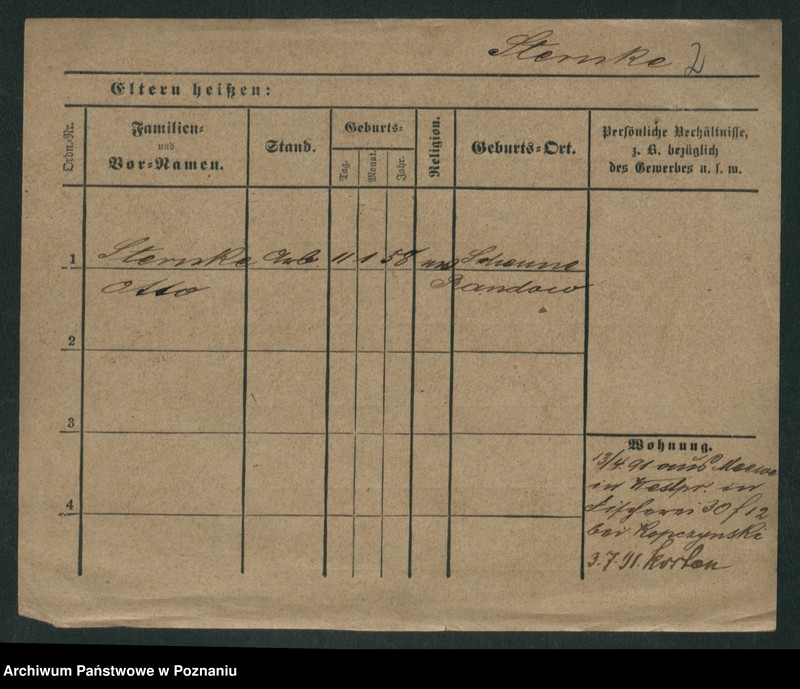 Sternke 2
Eltern heißen:
Ordn.-Nr.
Familien-
und
Vor-Namen.
Stand.
Geburts-
Tag.
Monat.
Jahr.
Religion.
Geburts-Ort.
Persönliche Verhältnisse,
z. B. bezüglich
des Gewerbes u. s. w.
1
Sternke Arb. 11 1 58 Scheune
Otto Randow
2
3
4
Wohnung.
13/4. 91 aus Mewe
in Westpr. in
Fischerei 30 f 12
bei Kopczynski
3.7.91.
Archiwum Państwowe w Poznaniu